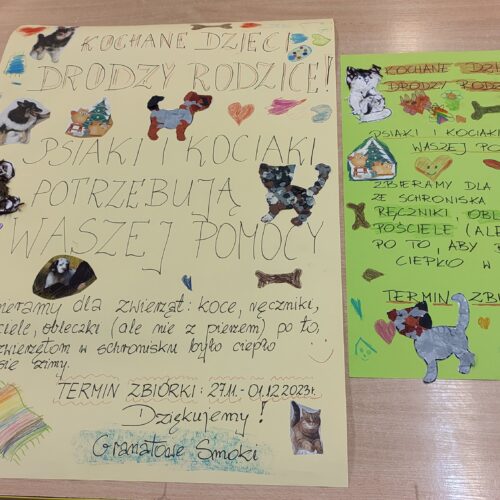 KOCHANE DZIECI
DRODZY RODZICE!
PSIAKI I KOCIAKI
POTRZEBUJĄ
WASZEJ POMOCY
dla zwierząt: koce, ręczniki,
obleczki (ale nie z pierzem) po to,
zwierzętom w schronisku było ciepło
zimy.
TERMIN ZBIÓRKI: 27.11.-01.12.2023r.
Dziękujemy!
Granatowe Smoki
KOCHANE
DRODZY
PSIAKI I KOCIAKI
WASZEJ
ZBIERAMY DLA
ZE SCHRONISKA
RĘCZNIKI,
POŚCIELE (ALE
PO TO, ABY
CIEPŁO W
TERMIN